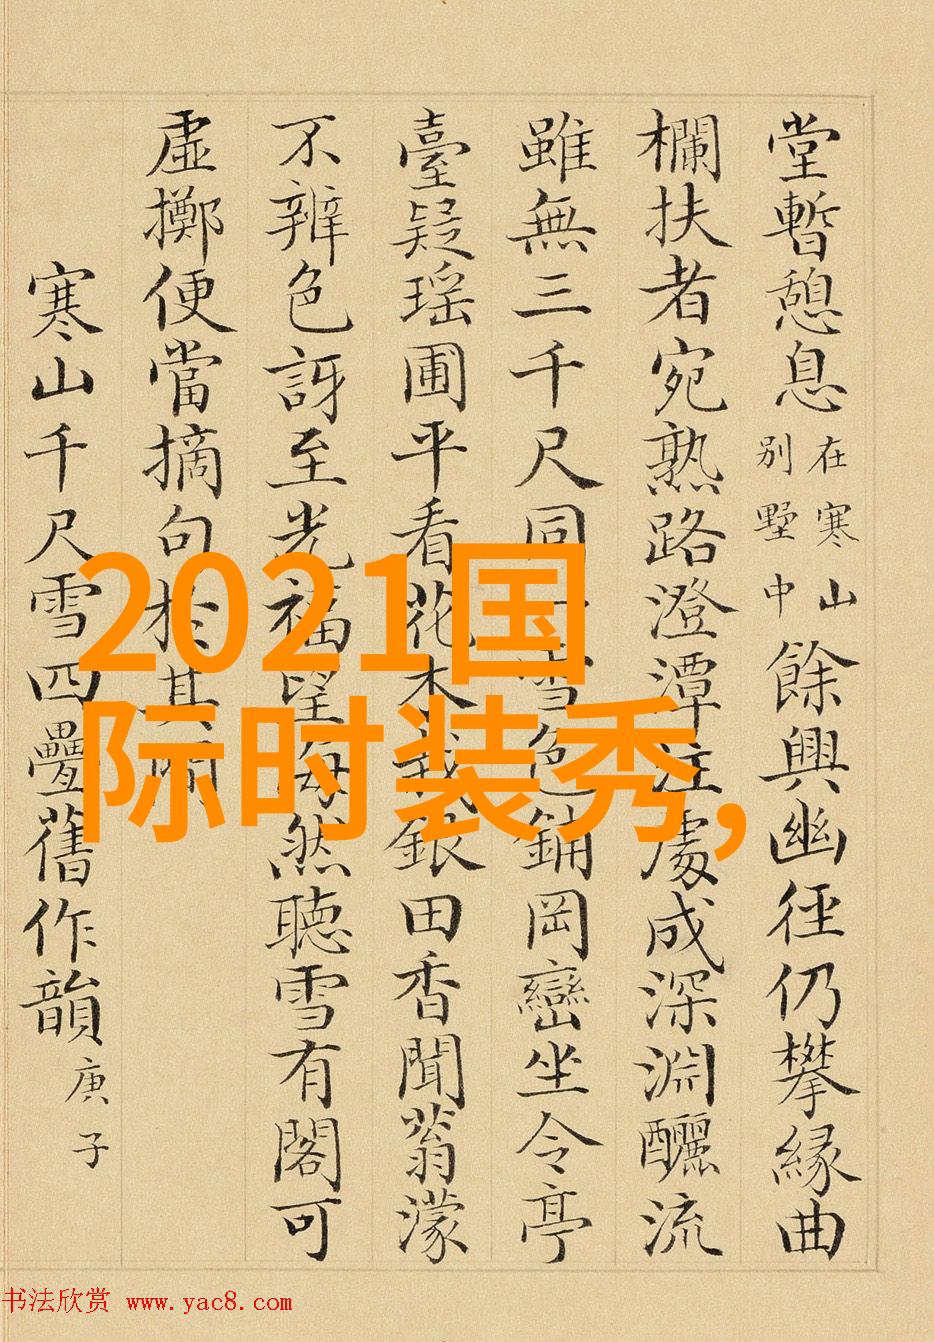 堂暫憩息在寒山別墅中餘興幽徑仍攀縁曲
欄扶者宛熟路澄潭注處成深淵釃流
雖無三千尺同一雪色鋪岡巒坐令亭
臺疑瑶圃平看花木栽銀田香聞蓊濛
不辨色訝至光福望每然聽雪有閣可
虛擲便當摘句於其
寒山千尺雪四疊舊作韻庚子
2021国
际时装秀,
书法欣赏 www.yac8.com